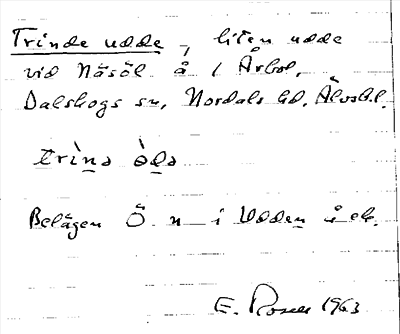 Trinde udde, liten udde
vid Näsöl å i Årbol,
Dalskogs sn, Nordals hd, Älvsb.l.
trìnə ò̱də
Belägen Ö. n i Udden å ek.
E. Rosell 1963